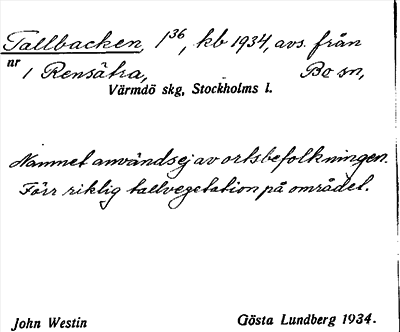 Tallbacken, 1³⁶, kb 1934, avs. från
nr 1 Rensätra, Bo sn,
Värmdö skg, Stockholms l.
Namnet användsej av ortsbefolkningen.
Förr riklig tallvegetation på området.
John Westin Gösta Lundberg 1934.